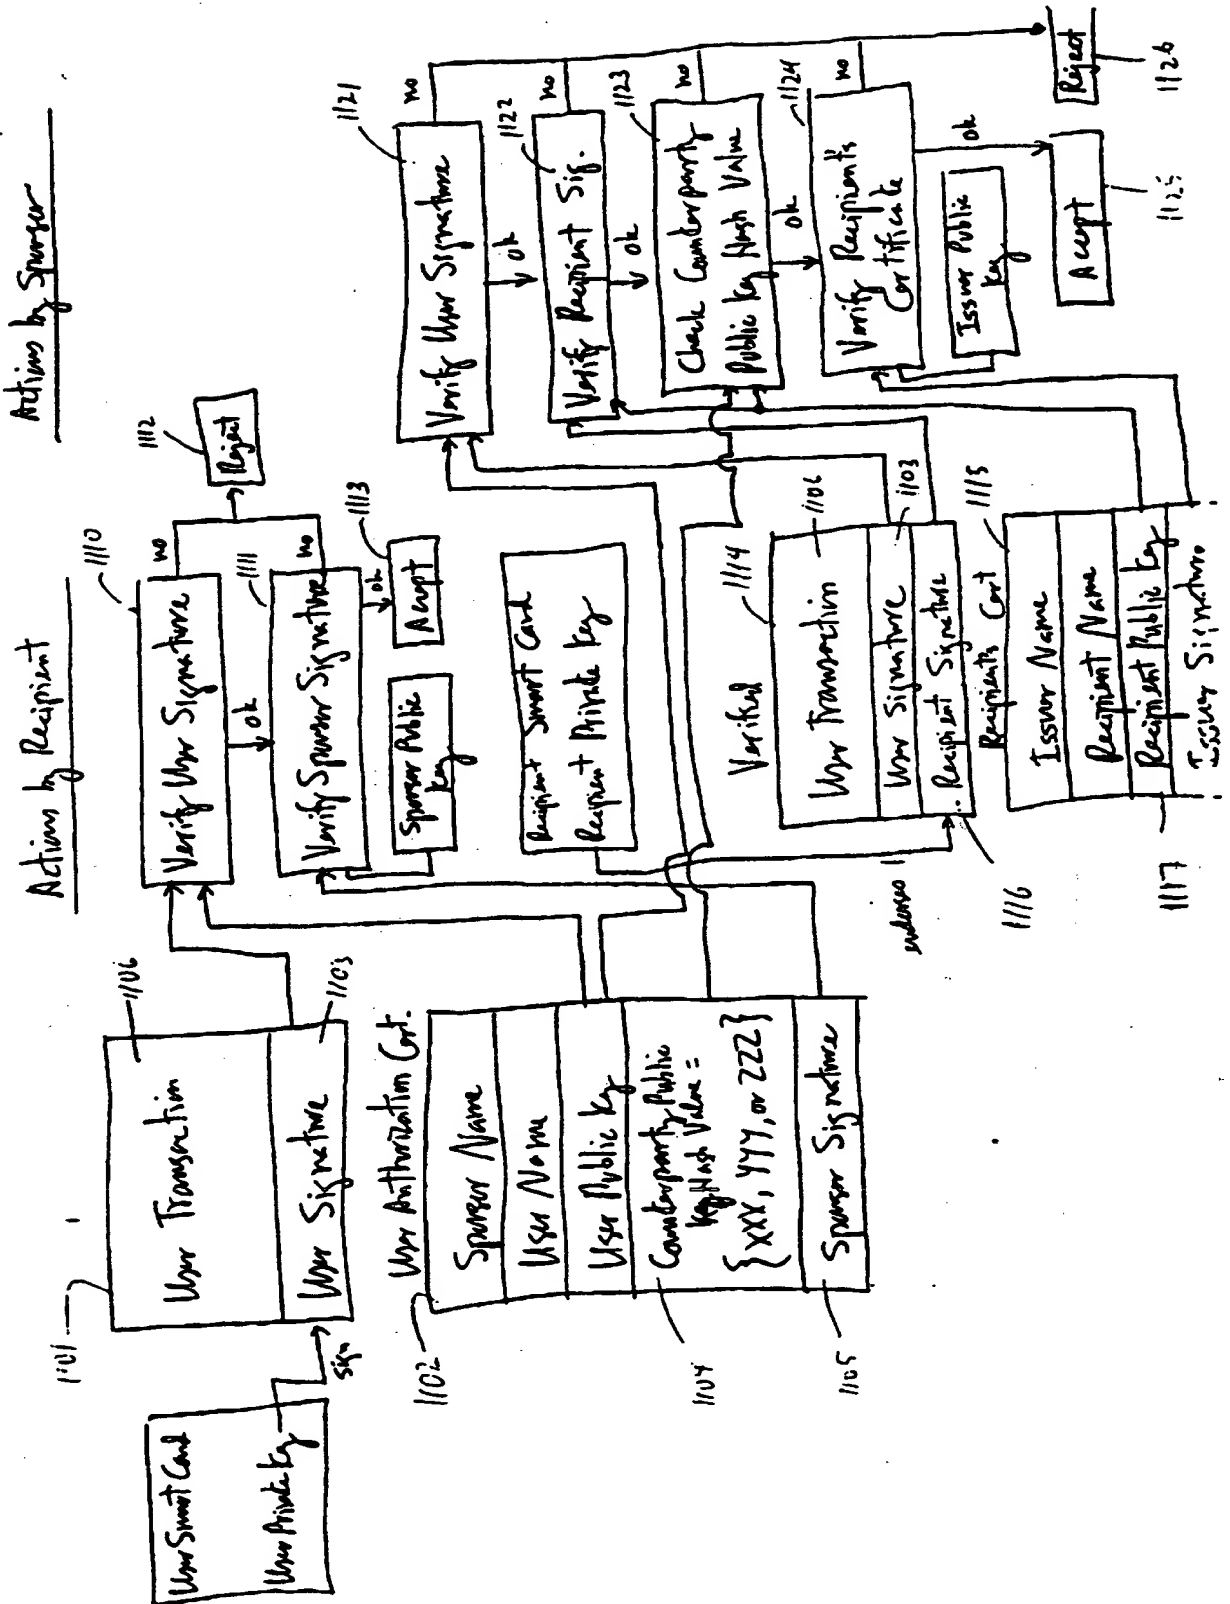 User Smart Card
User Private Key
sign
1101
User Transaction
1106
User Signature
1103
User Authorization Cert.
1102
Sponsor Name
User Name
User Public Key
Counterparty Public
Key Hash Value =
{XXX, YYY, or ZZZ}
1104
Sponsor Signature
1105
Actions by Recipient
1110
Verify User Signature
no
ok
1111
Verify Sponsor Signature
no
1112
Reject
ok
1113
Accept
Sponsor Public
Key
Recipient Smart Card
Recipient Private Key
endorses
Verified
1114
User Transaction
1106
User Signature
1103
Recipient Signature
1116
Recipients Cert
1115
Issuer Name
Recipient Name
Recipient Public Key
1117
Issuer Signature
Actions by Sponsor
1121
Verify User Signature
no
ok
1122
Verify Recipient Sig.
no
ok
1123
Check Counterparty
Public Key Hash Value
no
ok
1124
Verify Recipient's
Certificate
no
ok
Issuer Public
Key
Accept
1125
Reject
1126